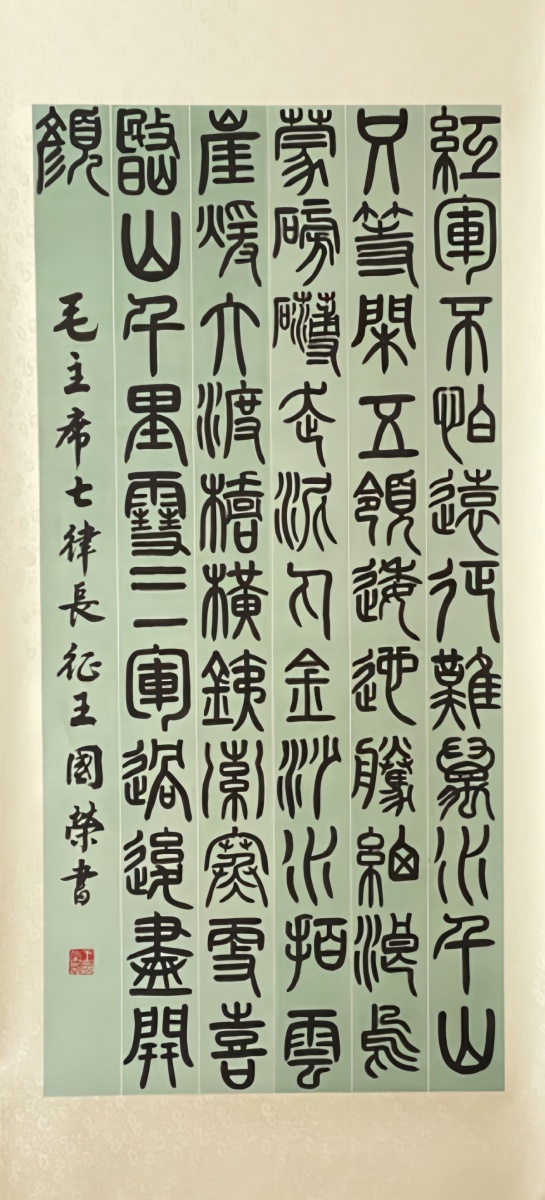 紅軍不怕遠征難萬水千山
只等閑五領逶迤騰細浪烏
蒙磅礴走泥丸金沙水拍雲
崖煖大渡橋橫銕索寒更喜
岷山千里雪三軍過後盡開
顏
毛主席七律長征王國榮書